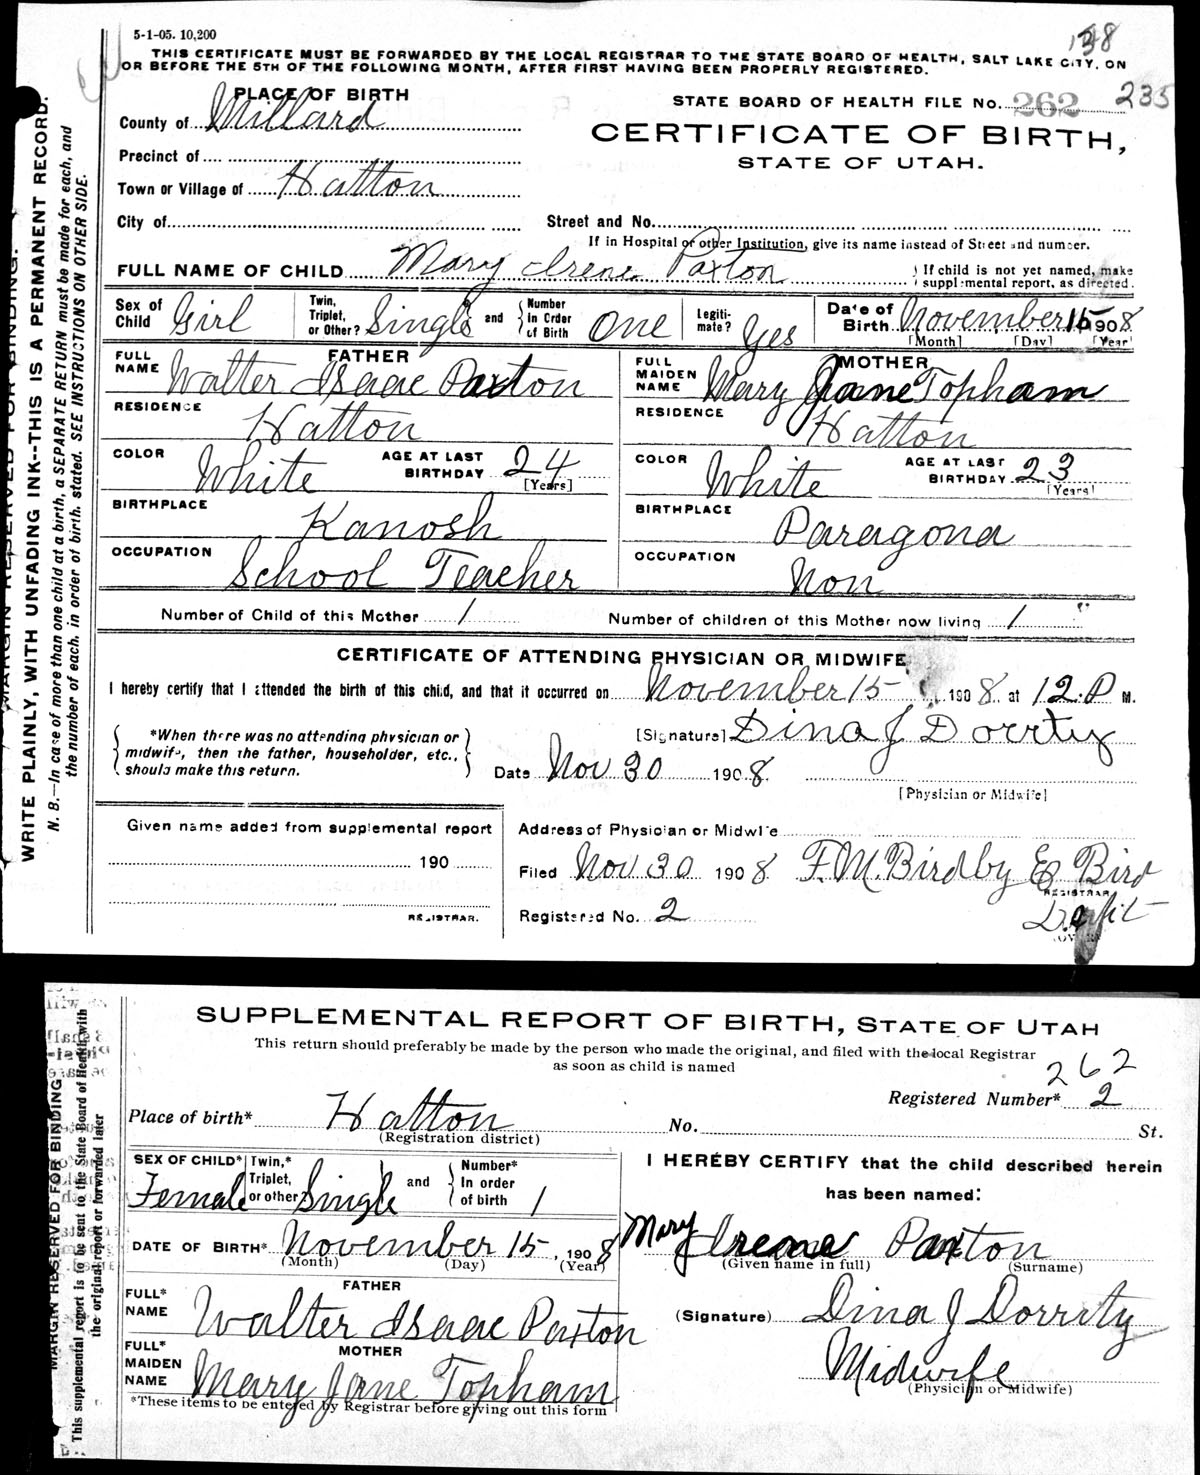 5-1-05. 10,200
138
THIS CERTIFICATE MUST BE FORWARDED BY THE LOCAL REGISTRAR TO THE STATE BOARD OF HEALTH, SALT LAKE CITY, ON
OR BEFORE THE 5TH OF THE FOLLOWING MONTH, AFTER FIRST HAVING BEEN PROPERLY REGISTERED.
PLACE OF BIRTH
STATE BOARD OF HEALTH FILE No. 262 235
County of Millard
CERTIFICATE OF BIRTH,
Precinct of
STATE OF UTAH.
Town or Village of Hatton
City of Street and No.
If in Hospital or other Institution, give its name instead of Street and number.
FULL NAME OF CHILD Mary Irene Paxton
If child is not yet named, make
supplemental report, as directed.
Sex of Child Girl
Twin, Triplet, or Other? Single and Number In Order of Birth One
Legitimate? Yes
Date of Birth November 15 1908
[Month] [Day] [Year]
FATHER
FULL NAME Walter Isaac Paxton
RESIDENCE Hatton
COLOR White AGE AT LAST BIRTHDAY 24 [Years]
BIRTHPLACE Kanosh
OCCUPATION School Teacher
MOTHER
FULL MAIDEN NAME Mary Jane Topham
RESIDENCE Hatton
COLOR White AGE AT LAST BIRTHDAY 23 [Years]
BIRTHPLACE Paragona
OCCUPATION Non
Number of Child of this Mother 1 Number of children of this Mother now living 1
CERTIFICATE OF ATTENDING PHYSICIAN OR MIDWIFE
I hereby certify that I attended the birth of this child, and that it occurred on November 15 1908 at 12. P M.
*When there was no attending physician or
midwife, then the father, householder, etc.,
should make this return.
[Signature] Dina J Dorrity
Date Nov 30 1908
[Physician or Midwife]
Given name added from supplemental report
190
REGISTRAR.
Address of Physician or Midwife
Filed Nov 30 1908 F. M. Bird by E Bird
REGISTRAR
Registered No. 2
MARGIN RESERVED FOR BINDING.
WRITE PLAINLY, WITH UNFADING INK--THIS IS A PERMANENT RECORD.
N. B.—In case of more than one child at a birth, a SEPARATE RETURN must be made for each, and
the number of each, in order of birth, stated. SEE INSTRUCTIONS ON OTHER SIDE.
SUPPLEMENTAL REPORT OF BIRTH, STATE OF UTAH
This return should preferably be made by the person who made the original, and filed with the local Registrar
as soon as child is named
262
Registered Number* 2
Place of birth* Hatton No. St.
(Registration district)
SEX OF CHILD* Female
Twin,* Triplet, or other? Single and Number* In order of birth 1
DATE OF BIRTH* November 15, 1908
(Month) (Day) (Year)
FATHER
FULL* NAME Walter Isaac Paxton
MOTHER
FULL* MAIDEN NAME Mary Jane Topham
*These items to be entered by Registrar before giving out this form
I HEREBY CERTIFY that the child described herein
has been named:
Mary Irene Paxton
(Given name in full) (Surname)
(Signature) Dina J Dorrity
Midwife
(Physician or Midwife)
MARGIN RESERVED FOR BINDING
This supplemental report is to be sent to the State Board of Health with
the original report or forwarded later